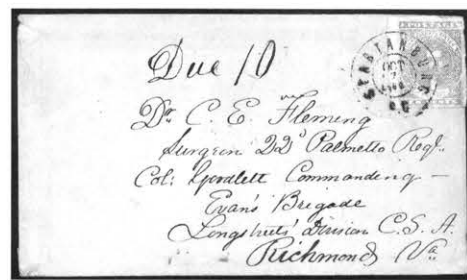 POSTAGE
SPARTANBURG
OCT
S.C
Due 10
Dr C. E. Fleming
Surgeon 22d Palmetto Regt.
Col: Goodlett Commanding -
Evans' Brigade
Longstreets' division C.S.A.
Richmond Va